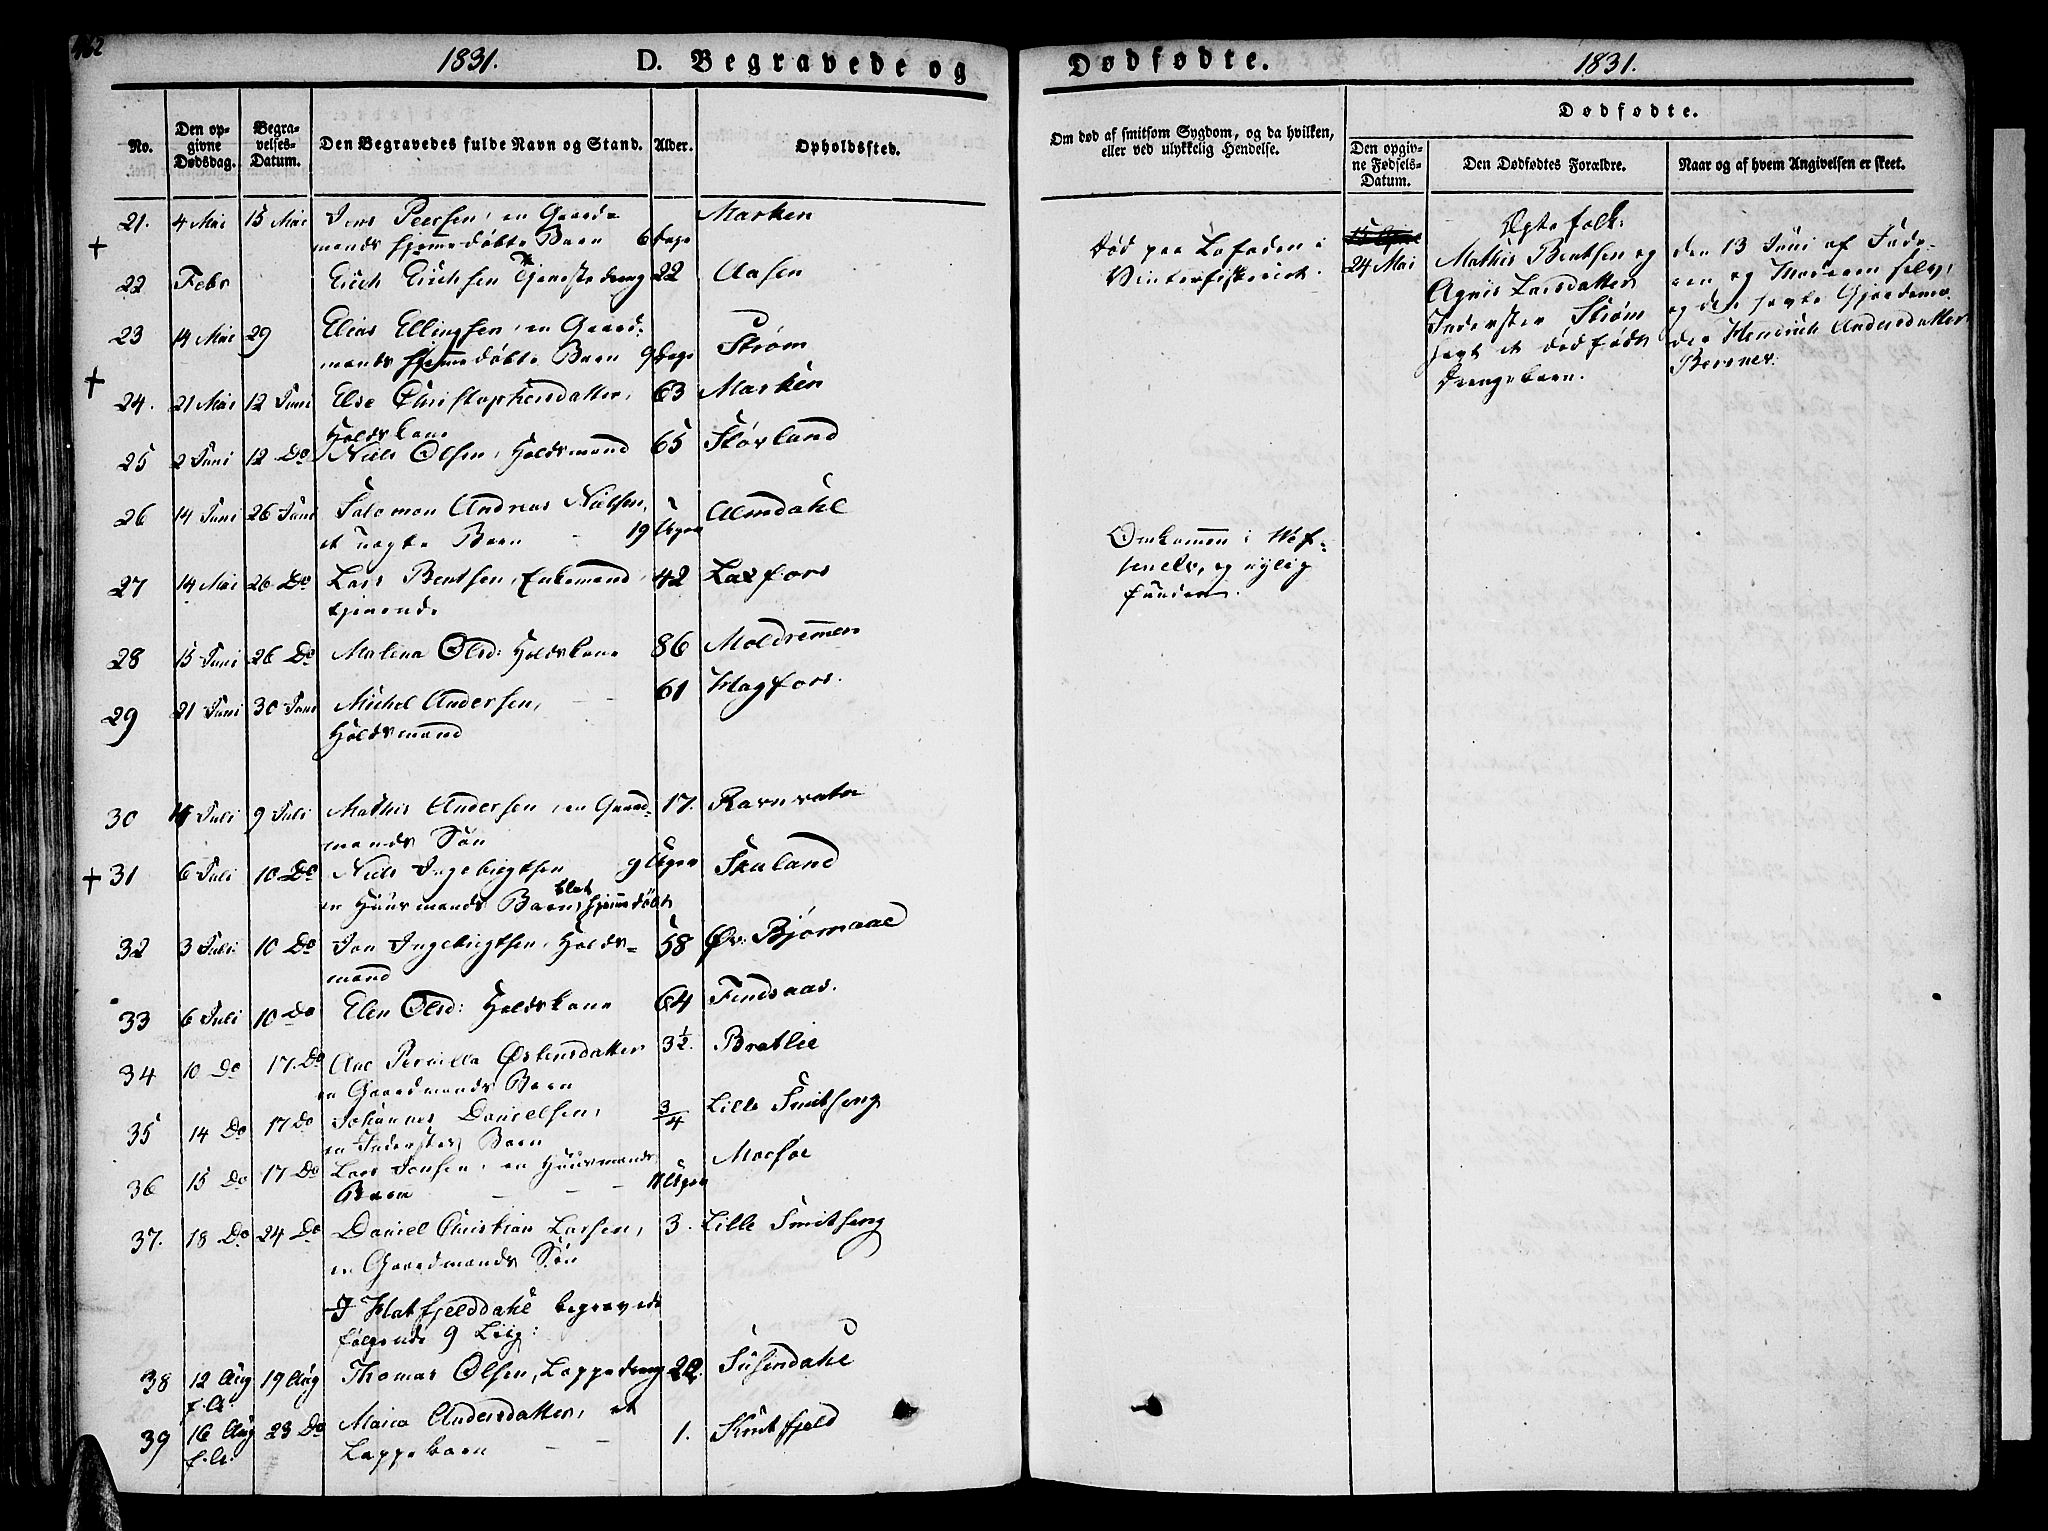 1831. D. Begravede og
No. Den opgivne Dødsdag. Begravelses-Datum. Den Begravedes fulde Navn og Stand. Alder. Opholdssted.
21. 4 Mai 15 Mai Jens Peersen, en Gaard- Marken
mands hjemmedøbte Barn 6 Dage
22 Febr Erich Erichsen Tjenestedreng 22 Aasen
23 14 Mai 29 Elias Ellingsen, en Gaard- Strøm
mands hjemmedøbte Barn 9 Dage
24. 21 Mai 12 Juni Else Christophersdatter, 63 Marken
Holdskone
25 2 Juni 12 Do Niels Olsen, Holdsmand 65 Størland
26 14 Juni 26 Juni Salomon Andreas Nielsen, Almdahl
et uægte Barn 19 Uger
27 14 Mai 26 Do Lars Bentsen, Enkemand, 42 Laxfors
tjenende
28 15 Juni 26 Do Malena Olsd: Holdskone 86 Moldremmen
29 21 Juni 30 Juni Michel Andersen, 61 Hagfors.
Holdsmand
30 Juli 9 Juli Mathis Andersen, en Gaard- 17. Ravnvatn
mands Søn
31 6 Juli 10 Do Niels Ingebrigtsen 9 Uger Skuland
en Huusmands Barn, blot hjemmedøbt
32 3 Juli 10 Do Jon Ingebrigtsen, Holds- 58 Øv: Bjørnaae
mand
33 6 Juli 10 Do Elen Olsd: Holdskone 64 Findsaas.
34 10 Do 17. Do Ane Pernilla Østensdatter 3½. Bratlie
en Gaardmands Barn
35 14 Do 17 Do Johannes Danielsen, 3/4 Lille Smitseng
en Inderstes Barn
36 15 Do 17 Do Lars Jonsen, en Huusmands Mosføe
Barn 11 Uger
37. 18 Do 24 Do Daniel Christian Larsen, 3. Lille Smitseng
en Gaardmands Søn
I Hatfjelddahl begravede
følgende 9 Liig:
38 12 Aug f.A. 19 Aug Thomas Olsen, Lappedreng 22. Susendahl
39 16 Aug f.A. 23 Do Maria Andersdatter, et 1. Knutfjeld
Lappebarn
Dødfødte. 1831.
Om død af smitsom Sygdom, og da hvilken,
eller ved ulykkelig Hendelse.
Dødfødte.
Den opgivne Fødsels-Datum. Den Dødfødtes Forældre. Naar og af hvem Angivelsen er skeet.
Død paa Lofoden i
Vinterfiskeriet.
Omkommen i Wef-
senelv, og nylig
funden.
24 Mai
Ægtefolk:
Mathis Bentsen og
Agnis Larsdatter
Inderster Strøm
havt et dødfødt
Drengebarn.
den 13 Juni af Fade-
ren og Moderen selv,
og der havte Gjordemo-
der Hendrich Andersdatter
Berener.